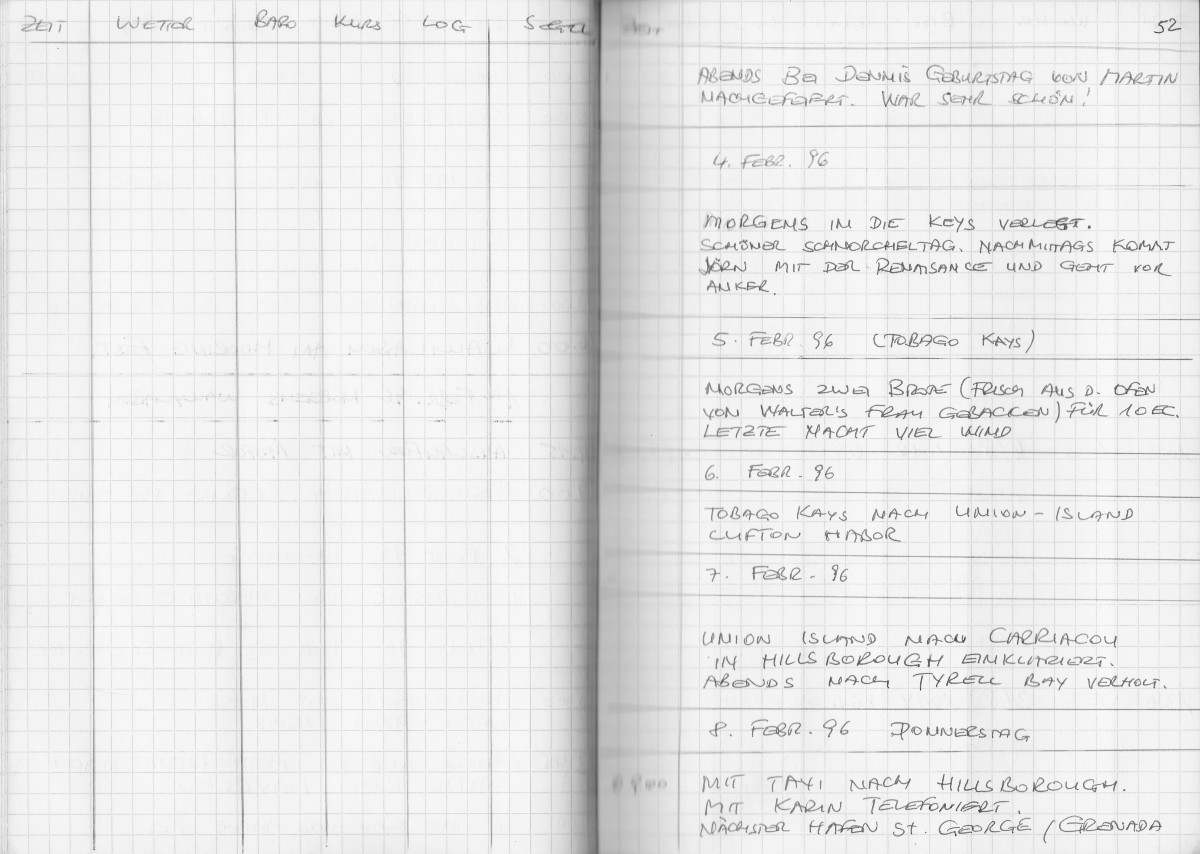 ZEIT WETTER BARO KURS LOG SEGEL
52
ABENDS BEI DENNIS GEBURTSTAG VON MARTIN
NACHGEFEIERT. WAR SEHR SCHÖN!
4. FEBR. 96
MORGENS IN DIE KEYS VERLEGT.
SCHÖNER SCHNORCHELTAG. NACHMITTAGS KOMMT
JÖRN MIT DER RENAISANCE UND GEHT VOR
ANKER.
5. FEBR. 96 (TOBAGO KAYS)
MORGENS ZWEI BROTE (FRISCH AUS D. OFEN
VON WALTER'S FRAU GEBACKEN) FÜR 10 EC.
LETZTE NACHT VIEL WIND
6. FEBR. 96
TOBAGO KAYS NACH UNION-ISLAND
CLIFTON HABOR
7. FEBR. 96
UNION ISLAND NACH CARRIACOU
IN HILLSBOROUGH EINKLARIERT.
ABENDS NACH TYRELL BAY VERHOLT.
8. FEBR. 96 DONNERSTAG
MIT TAXI NACH HILLSBOROUGH.
MIT KARIN TELEFONIERT.
NÄCHSTER HAFEN St. GEORGE / GRENADA